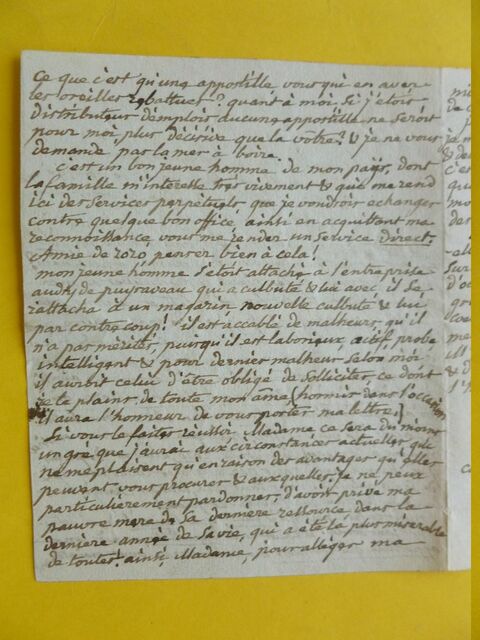 Ce que c'est qu'une appostille, vous qui en avez
les oreilles rebattues? quant à moi si j'etois
distributeur d'emplois aucune appostille ne seroit
pour moi plus décisive que la votre? & je ne vous
demande pas la mer à boire.
c'est un bon jeune homme de mon pays, dont
la famille m'interesse très vivement & qui me rend
ici des services perpetuels que je voudrois echanger
contre quelque bon office, ainsi en acquittant ma
reconnoissance vous me rendez un service direct.
Amie de 2020 penser bien à cela!
mon jeune homme s'étoit attaché à l'entreprise
aud. de puyraveau qui a culbuté & lui avec il se
rattacha à un magazin nouvelle culbute & lui
par contre coup! il est accablé de malheurs, qu'il
n'a pas mérités, puisqu'il est laborieux actif, probe
intelligent & pour dernier malheur selon moi
il auroit celui d'être obligé de solliciter, ce dont
je le plains de toute mon ame (hormis dans l'occasion
il aura l'honneur de vous porter ma lettre.)
Si vous le faites réussir, Madame ce sera du moins
un gré que j'aurai aux circonstances actuelles qui
ne me plaisent qu'en raison des avantages qu'elles
peuvent vous procurer & auxquelles je ne peux
particulièrement pardonner, d'avoir privé ma
pauvre mere de sa dernière ressource dans la
dernière année de sa vie, qui a été la plus miserable
de toutes. ainsi, Madame, pour alléger ma